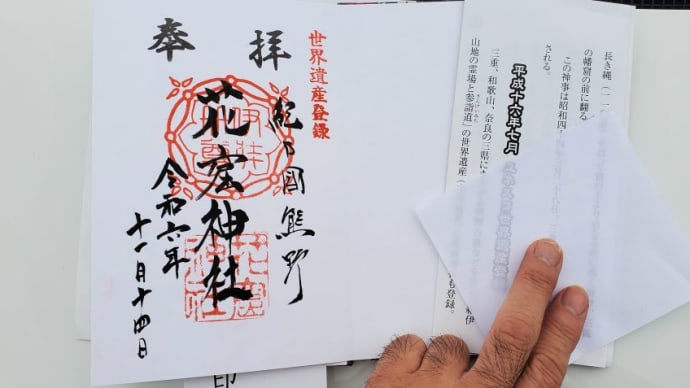 世界遺産登録
奉拝
紀乃國熊野
花窟神社
令和六年
十一月十四日
花窟神社
印
長き縄(一
の幡窟の前に翻る
この神事は昭和四
される。
平成十六年七月
三重、和歌山、奈良の三県に
山地の霊場と参詣道」の世界遺産(
も登録。